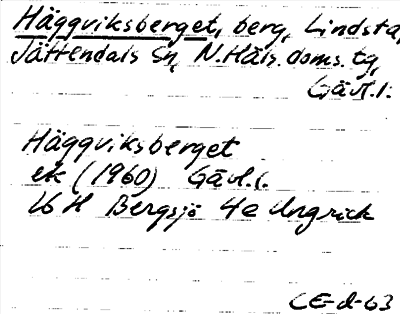 Häggviksberget, berg, Lindsta,
Jättendals sn, N. Häls. doms. tg,
Gävl. l.
Häggviksberget
ek (1960) Gävl. l.
16 H Bergsjö 4e Ungrick
CE-d-63